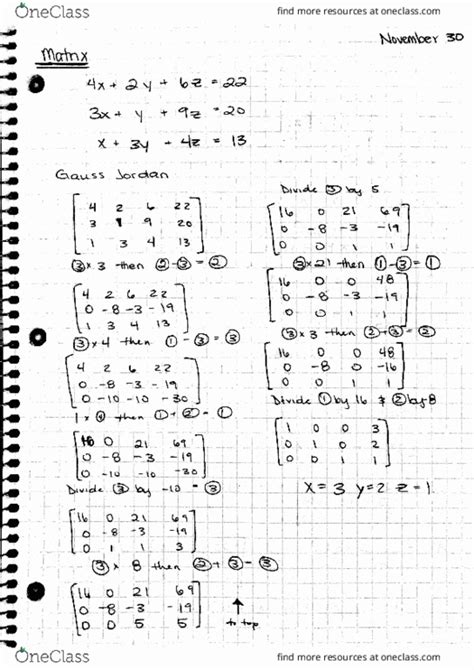 OneClass
find more resources at oneclass.com
November 30
Matrix
4x + 2y + 6z = 22
3x + y + 9z = 20
x + 3y + 4z = 13
Gauss Jordan
4 2 6 22
3 1 9 20
1 3 4 13
③ × 3 then ②-③ = ②
4 2 6 22
0 -8 -3 -19
1 3 4 13
③ × 4 then ① - ③ = ③
4 2 6 22
0 -8 -3 -19
0 -10 -10 -30
then ① + ② = ①
16 0 21 69
0 -8 -3 -19
0 -10 -10 -30
Divide ③ by -10 = ③
16 0 21 69
0 -8 -3 -19
0 1 1 3
③ × 8 then ② + ③ - ③
16 0 21 69
0 -8 -3 -19
0 0 5 5
↑
to top
Divide ③ by 5
16 0 21 69
0 -8 -3 -19
0 0 1 1
③ × 21 then ①-③ = ①
16 0 0 48
0 -8 -3 -19
0 0 1 1
③ × 3 then ②+③ = ②
16 0 0 48
0 -8 0 -16
0 0 1 1
Divide ① by 16 & ② by -8
1 0 0 3
0 1 0 2
0 0 1 1
x = 3 y = 2 z = 1
OneClass
find more resources at oneclass.com